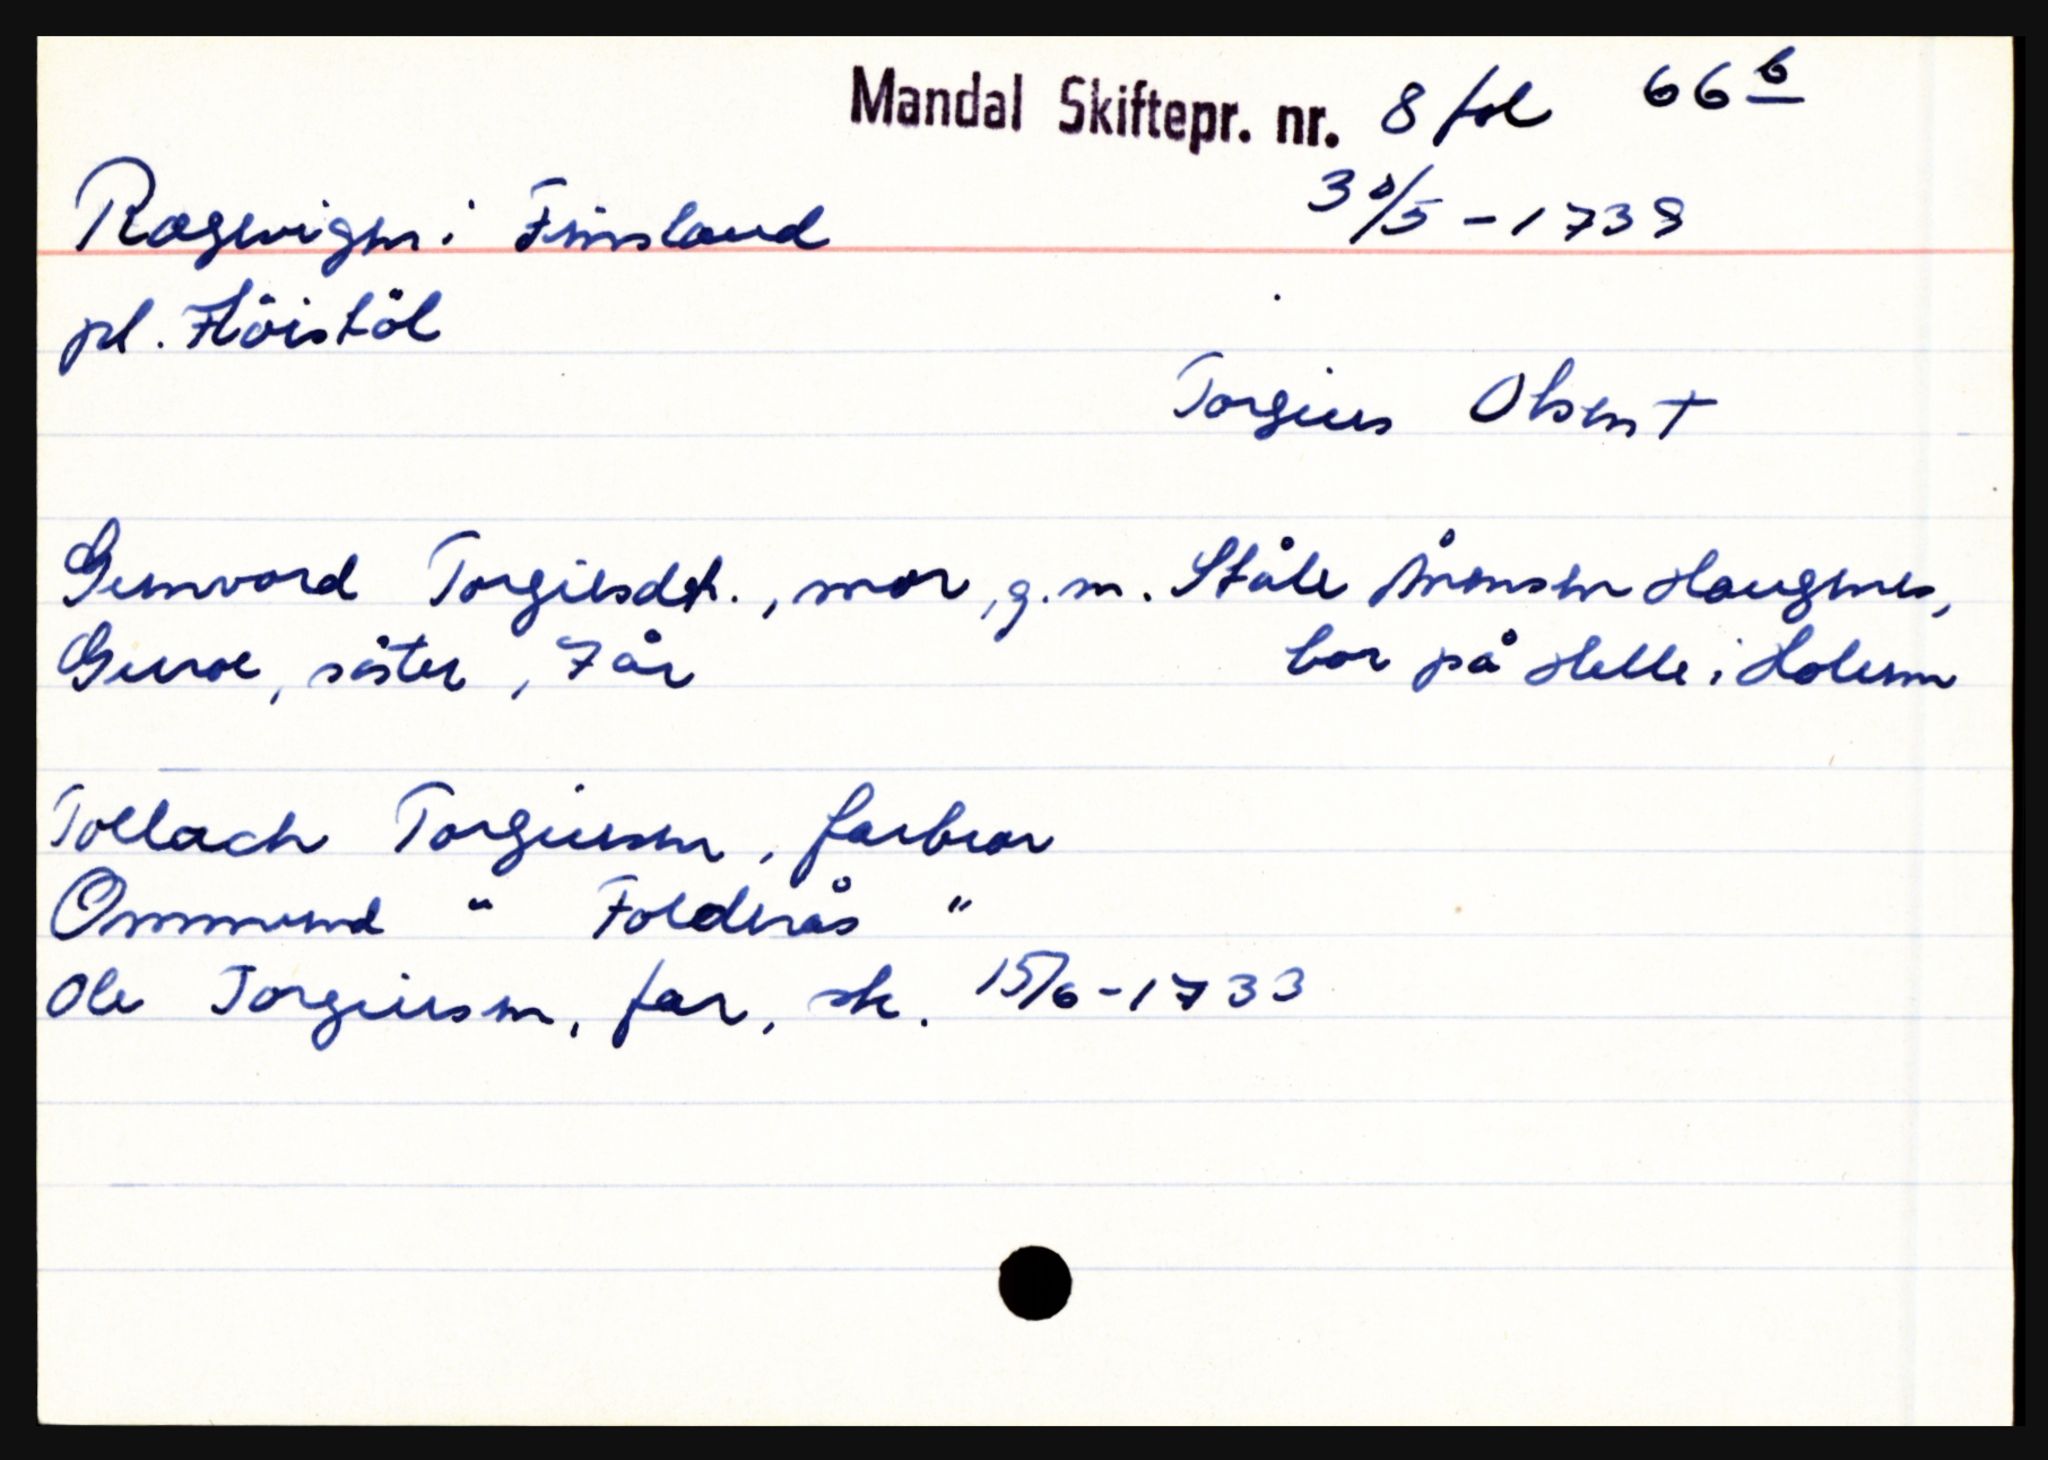 Mandal Skiftepr. nr. 8 fol 66 b
Ragevigen i Finsland 30/5 - 1738
pl. Flöistöl
Torgius Olsen †
Gunvord Torgilsdt., mor, g. m. Ståle Åmonsen Haugenes,
Guroe, söster, 7 år bor på Helle i Holum
Tollach Torgiussen, farbror
Ommund " Folderås "
Ole Torgiusen, far, sk. 15/6 - 1733